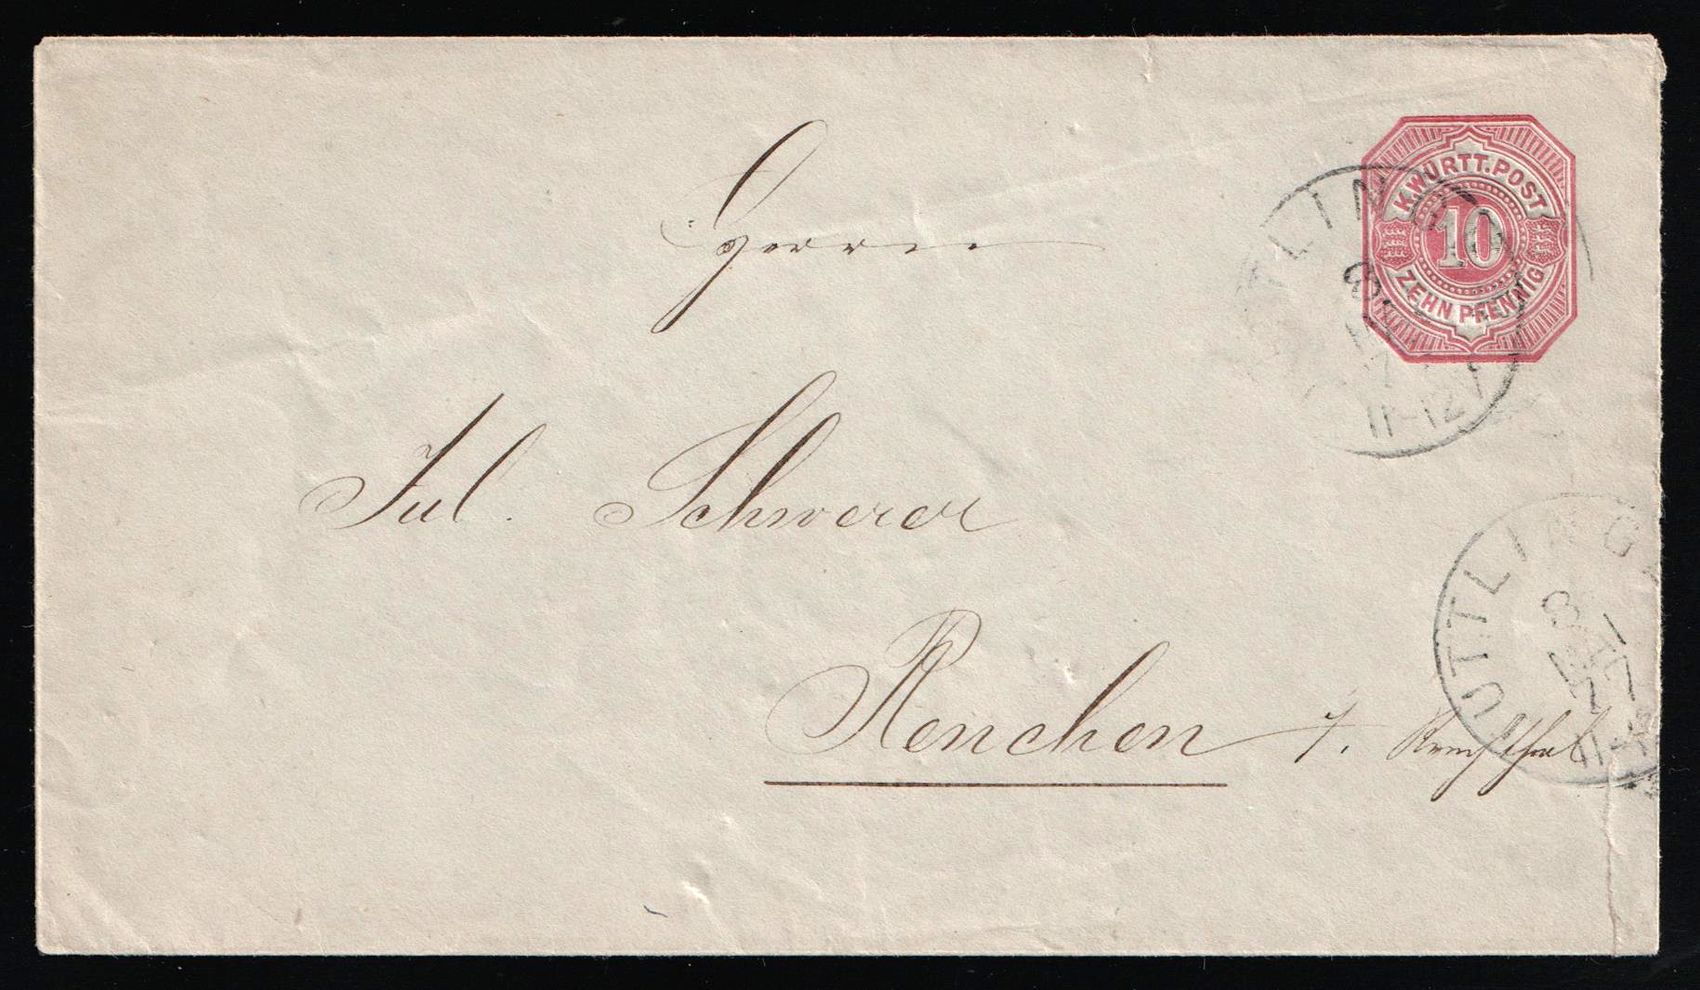 K. WÜRTT. POST
10
ZEHN PFENNIG
Herrn
Jul. Schwerer
Renchen
TLING
11-12
UTTLING
8
11-1